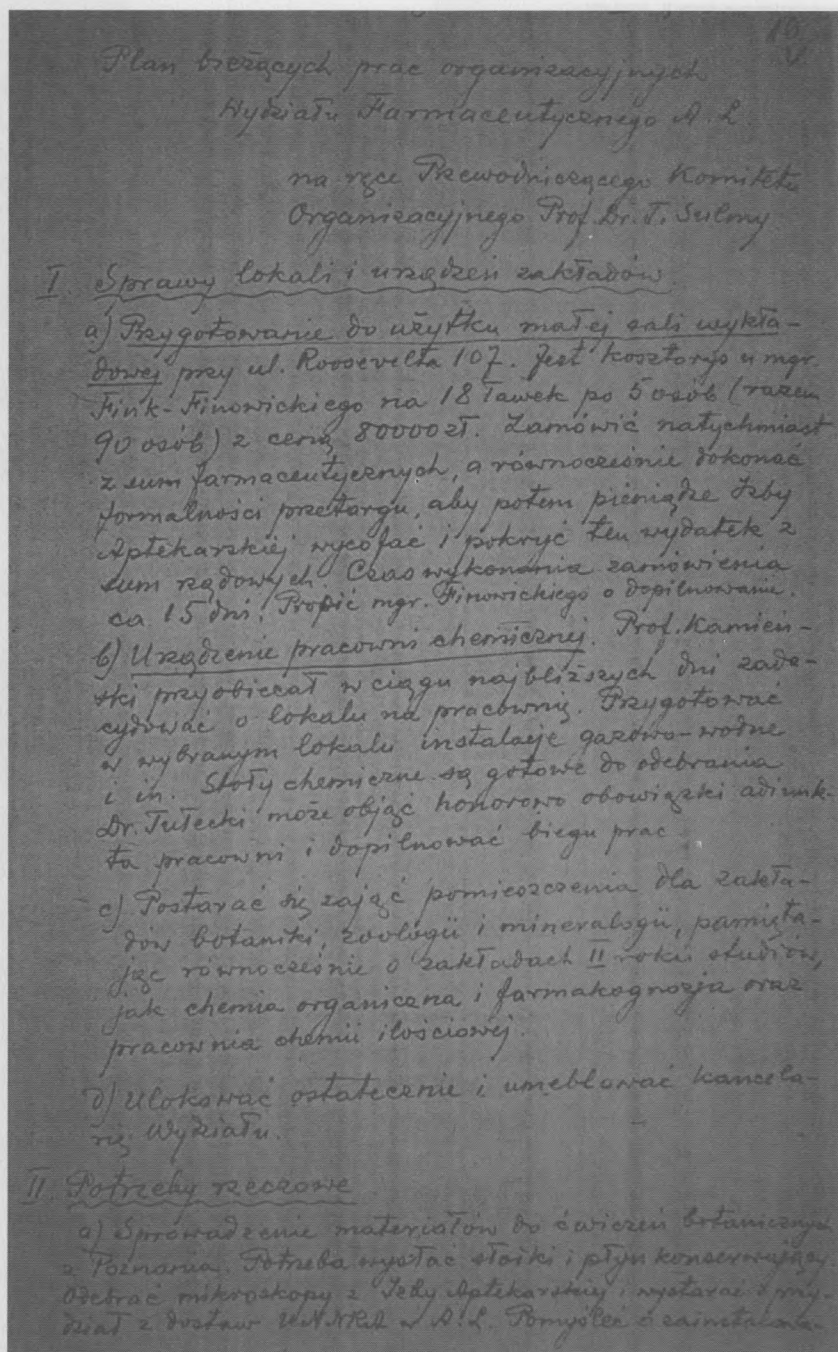 10
V
Plan bieżących prac organizacyjnych
Wydziału Farmaceutycznego A. L.
na ręce Przewodniczącego Komitetu
Organizacyjnego Prof. Dr. T. Sulmy
I. Sprawy lokali i urządzeń zakładów.
a) Przygotowanie do użytku małej sali wykła-
dowej przy ul. Roosevelta 107. Jest kosztorys u mgr.
Fink-Finowickiego na 18 ławek po 5 osób (razem
90 osób) z ceną 80000 zł. Zamówić natychmiast
z sum farmaceutycznych, a równocześnie dokonać
formalności przetargu, aby potem pieniądze Izby
Aptekarskiej wycofać i pokryć ten wydatek z
sum rządowych. Czas wykonania zamówienia
ca 15 dni. Prosić mgr. Finowickiego o dopilnowanie.
b) Urządzenie pracowni chemicznej. Prof. Kamień-
ski przyobiecał w ciągu najbliższych dni zade-
cydować o lokalu na pracownię. Przygotować
w wybranym lokalu instalacje gazowo-wodne
i in. Stoły chemiczne są gotowe do odebrania
Dr. Tułecki może objąć honorowo obowiązki adiunk-
ta pracowni i dopilnować biegu prac
c) Postarać się zająć pomieszczenia dla zakła-
dów botaniki, zoologii i mineralogii, pamięta-
jąc równocześnie o zakładach II roku studiów,
jak chemia organiczna i farmakognozja oraz
pracownia chemii ilościowej.
d) Ulokować ostatecznie i umeblować kancela-
rię Wydziału.
II. Potrzeby rzeczowe
a) Sprowadzenie materiałów do ćwiczeń botanicznych
z Poznania. Potrzeba wysłać słoiki i płyn konserwujący.
Odebrać mikroskopy z Izby Aptekarskiej i wystarać o przy-
dział z dostaw UNNRA w A. L. Pomyśleć o zainstalowa-